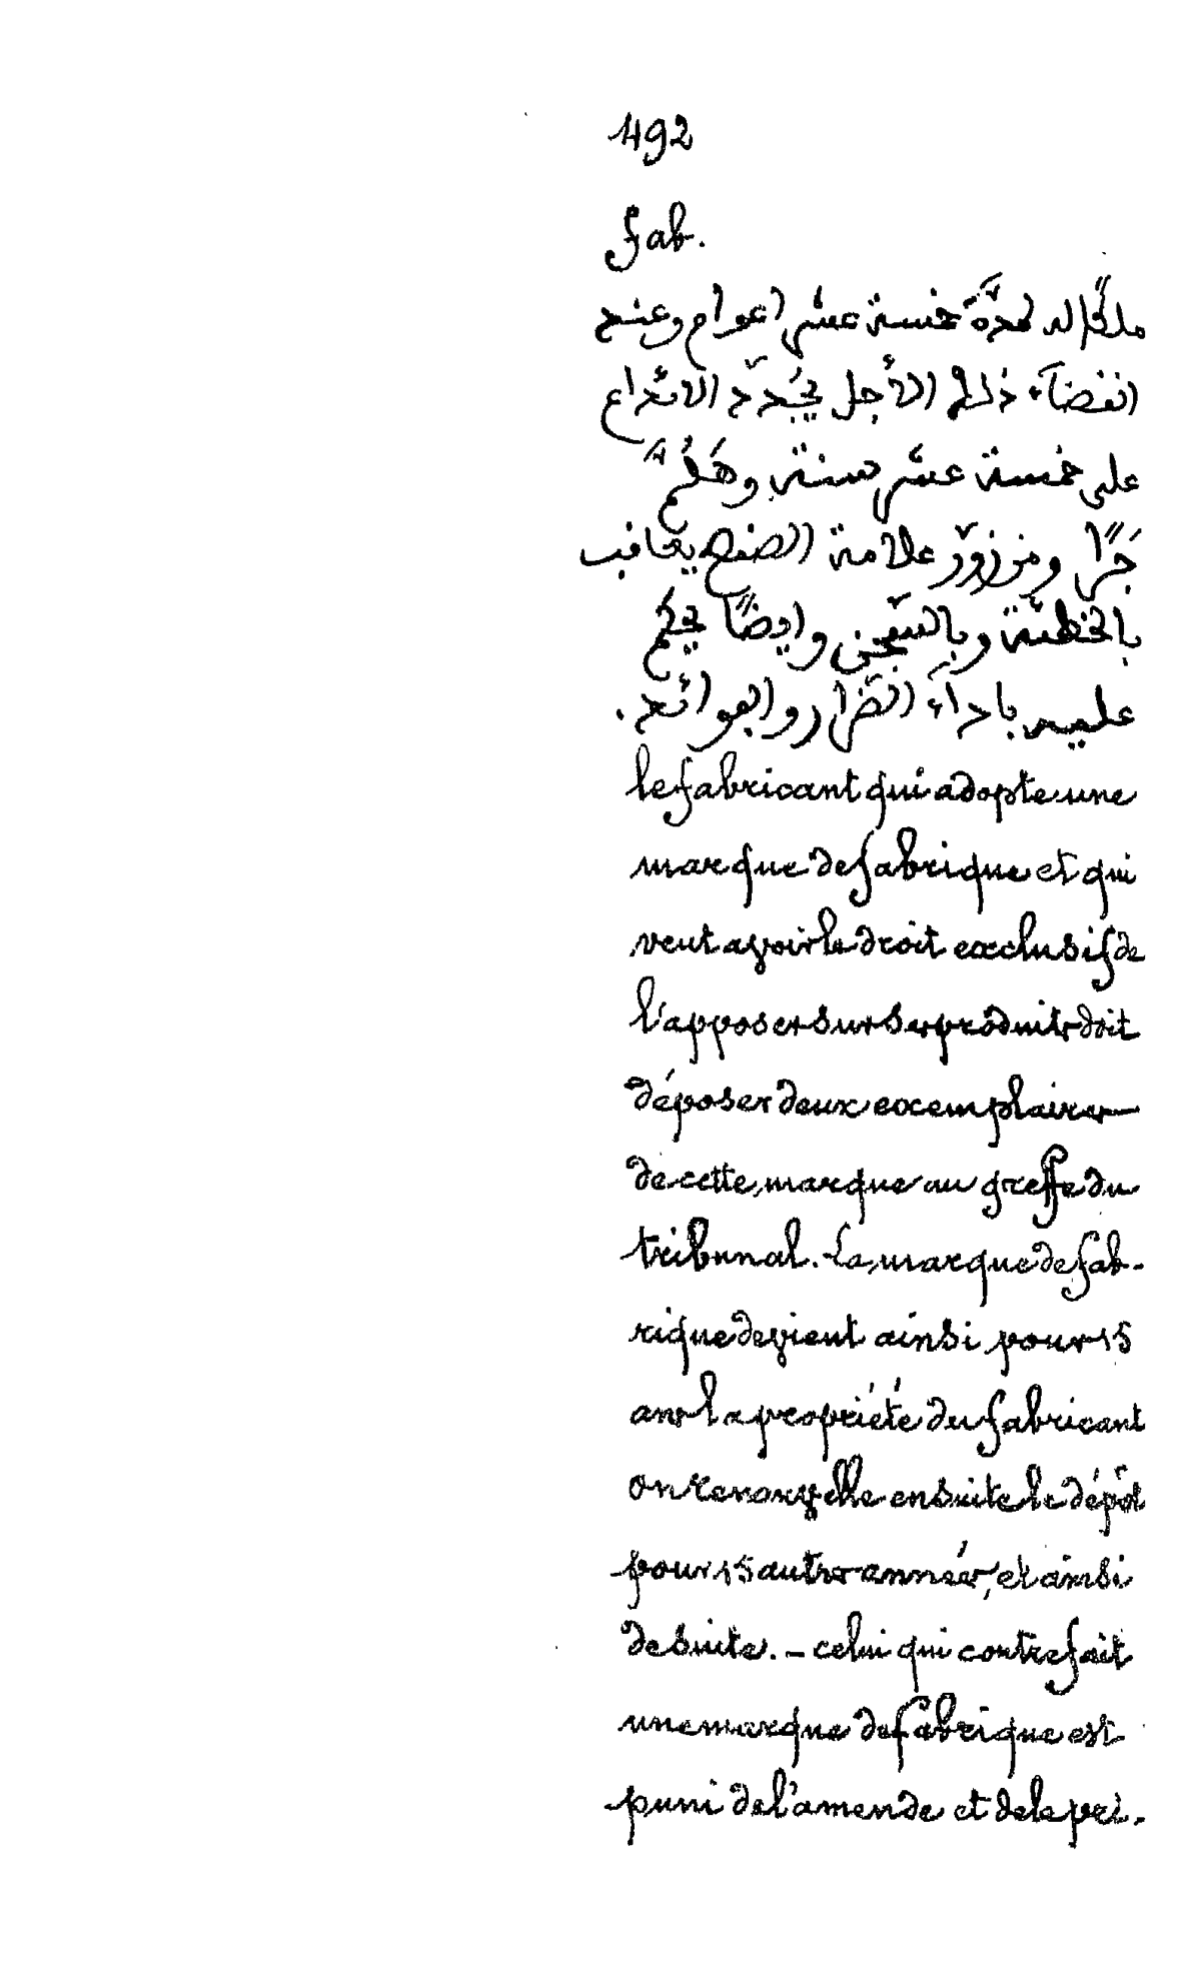 492
fab.
ملكًا له لمدَّة خمسة عشر اعوام وعند
انقضآء ذلك الأجل يجَدّد الايداع
على خمسة عشر سنة وهَلُمَّ
جَرًّا ومن زوّر علامة الصنع يعاقب
بالخطيّة وبالسّجن وايضًا يحكم
عليه بادآء الضرار والعوائد.
le fabricant qui adopte une
marque de fabrique et qui
veut avoir le droit exclusif de
l'apposer sur ses produits doit
déposer deux exemplaires
de cette marque au greffe du
tribunal. - La marque de fab-
rique devient ainsi pour 15
ans la propriété du fabricant
on renouvelle ensuite le dépôt
pour 15 autres années, et ainsi
de suite. - celui qui contrefait
une marque de fabrique est
puni de l'amende et de la pri-